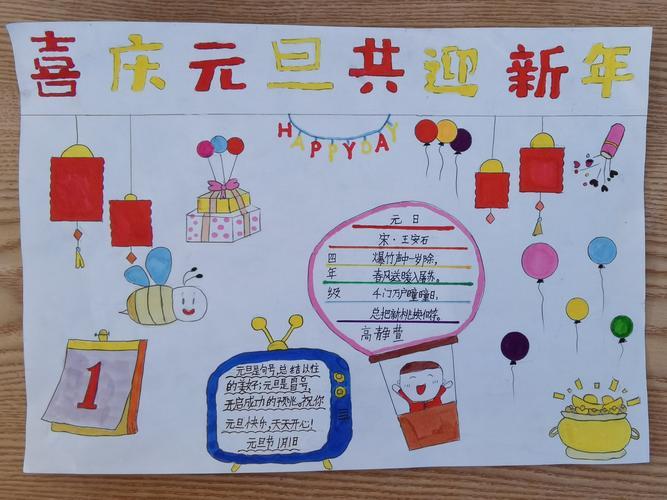 喜庆元旦共迎新年
HAPPYDAY
元日
宋·王安石
爆竹声中一岁除,
春风送暖入屠苏。
千门万户曈曈日,
总把新桃换旧符。
四年级
高静萱
1
元旦是句号,总结以往
的美好;元旦是冒号,
开启成功的预兆。祝你
元旦快乐,天天开心!
元旦节1月1日